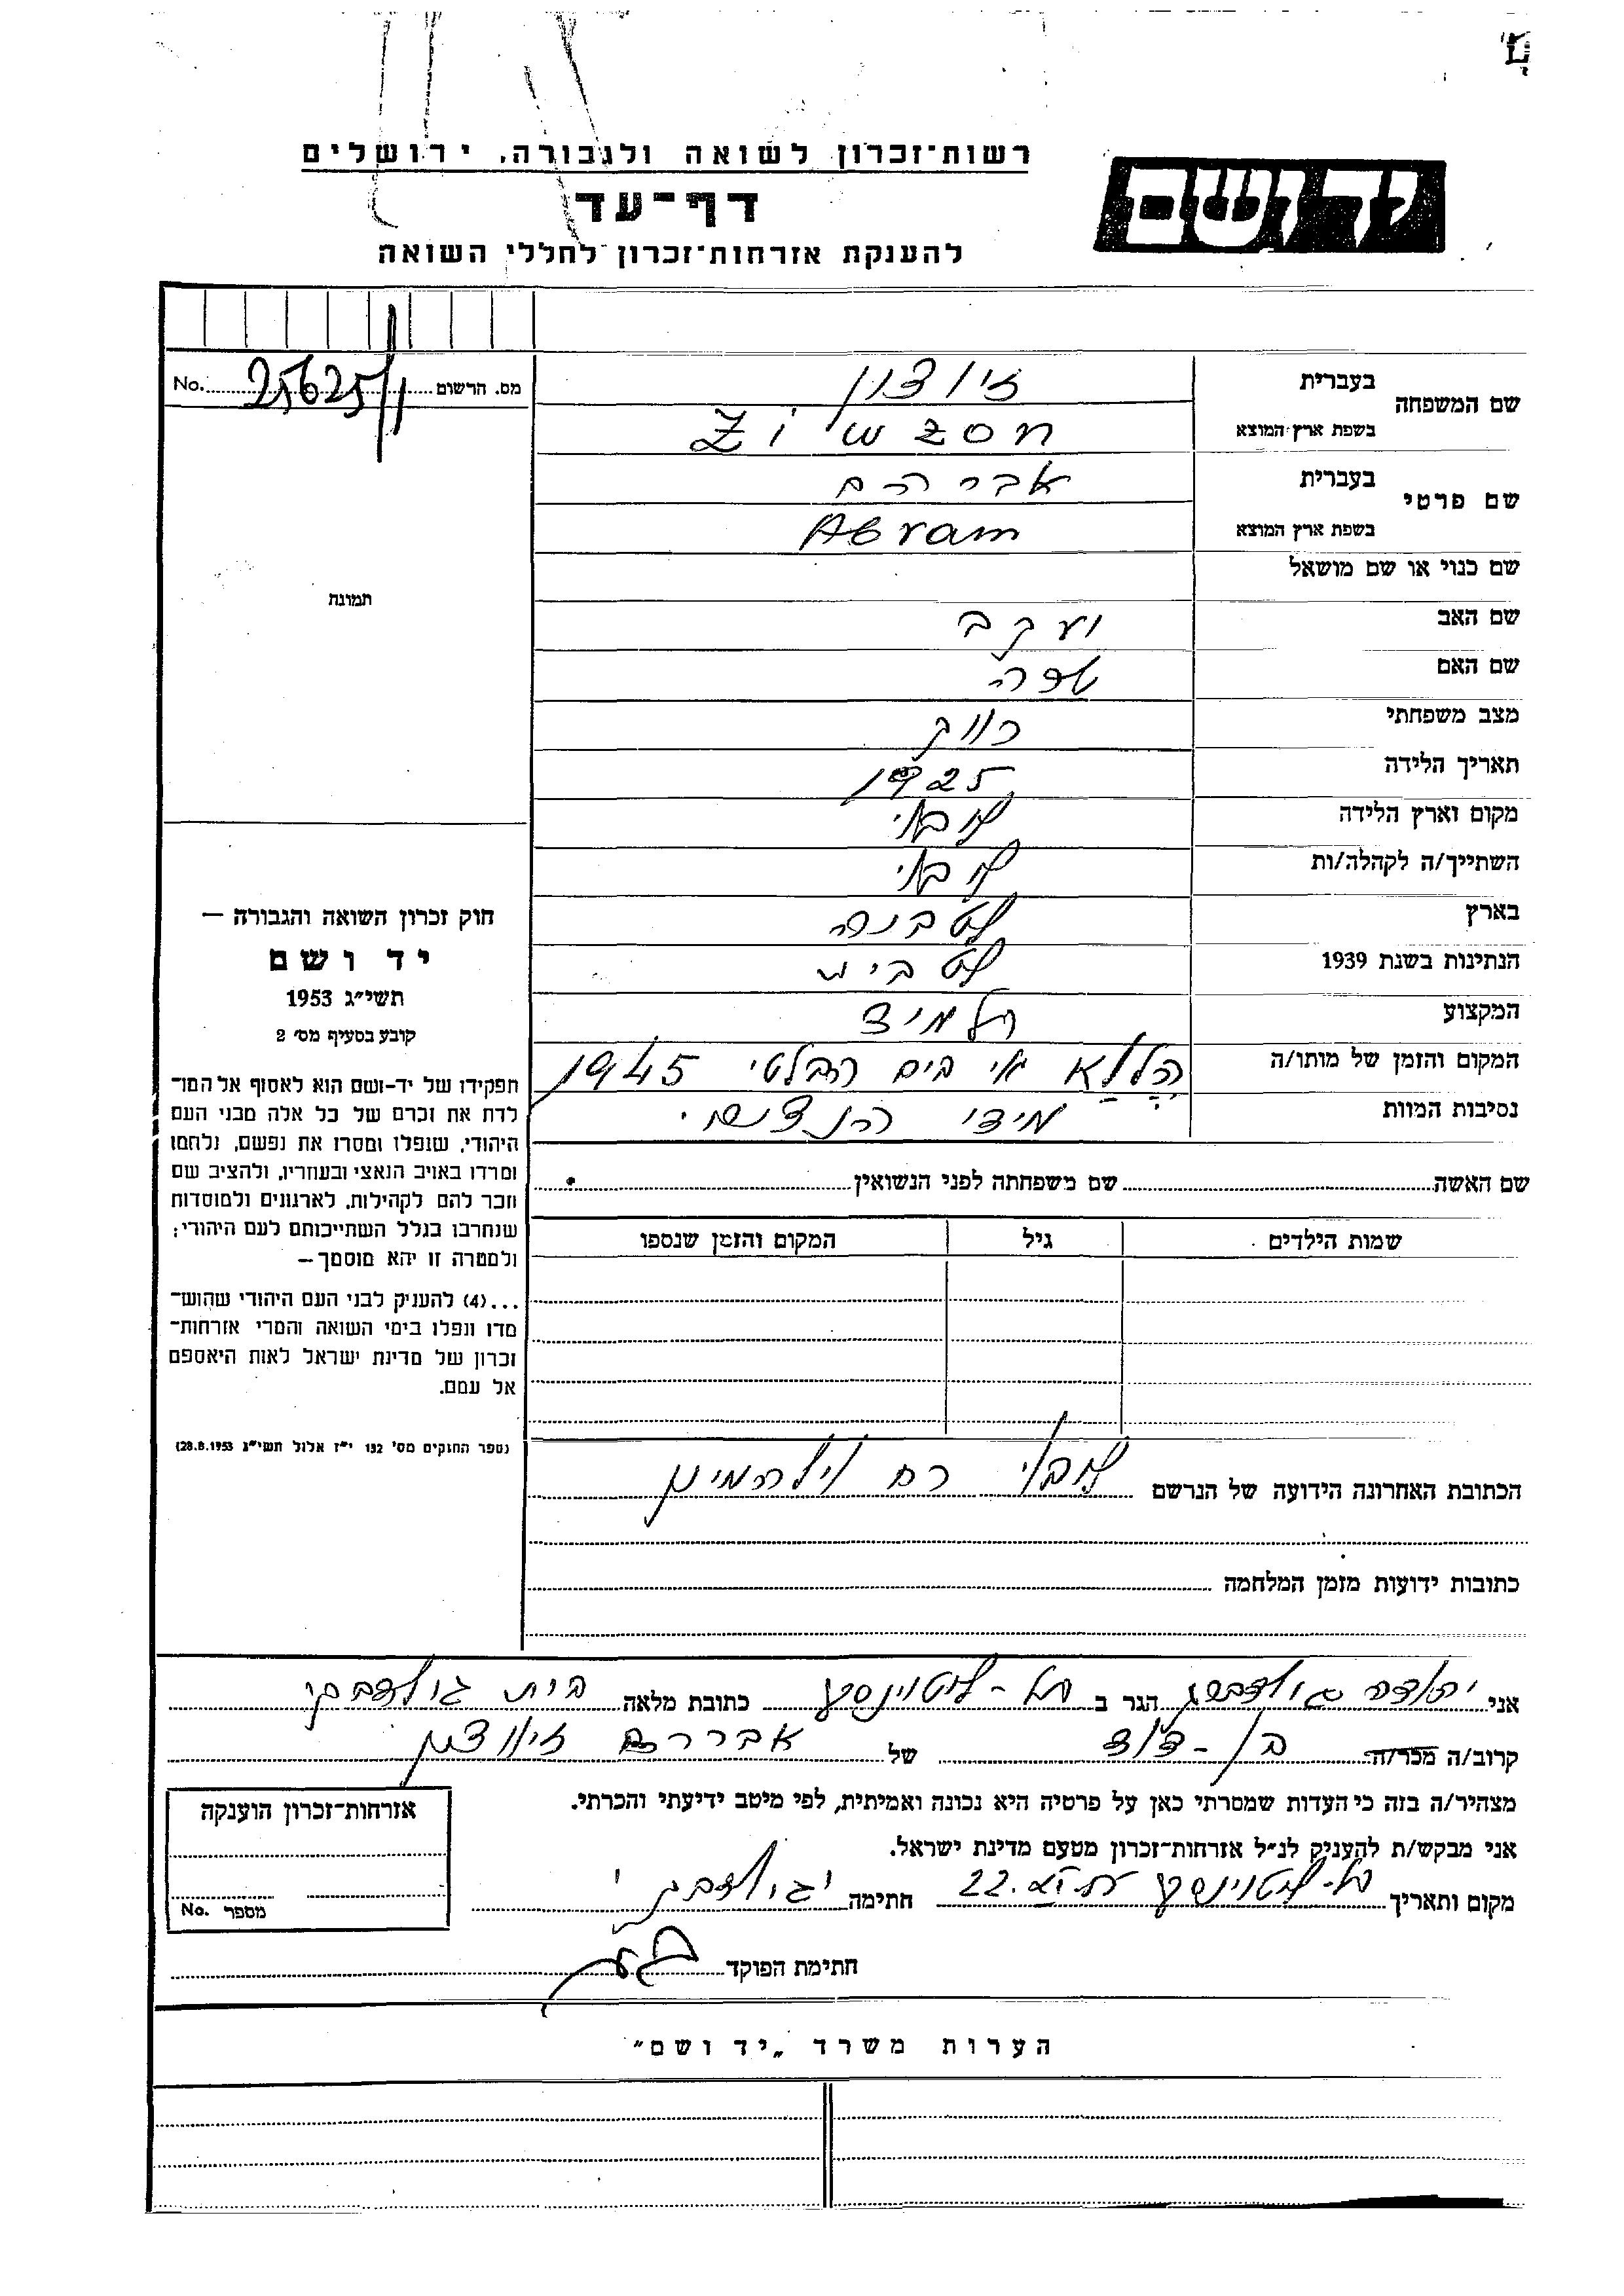 רשות־זכרון לשואה ולגבורה, ירושלים
יד ושם
דף־עד
להענקת אזרחות־זכרון לחללי השואה
מס. הרשום 25625/ No.
שם המשפחה
בעברית זיוצון
בשפת ארץ המוצא Ziwzon
שם פרטי
בעברית אברהם
בשפת ארץ המוצא Abram
שם כנוי או שם מושאל
תמונה
שם האב יעקב
שם האם
מצב משפחתי רווק
תאריך הלידה 1925
מקום וארץ הלידה ליבאוי
השתייך/ה לקהלה/ות ליבאוי
בארץ לטביה
הנתינות בשנת 1939 לטבית
המקצוע תלמיד
המקום והזמן של מותו/ה הים הבלטי 1945
נסיבות המוות מידי הנצים
שם האשה שם משפחתה לפני הנשואין
שמות הילדים גיל המקום והזמן שנספו
הכתובת האחרונה הידועה של הנרשם
כתובות ידועות מזמן המלחמה
חוק זכרון השואה והגבורה —
יד ושם
תשי״ג 1953
קובע בסעיף מס׳ 2
תפקידו של יד־ושם הוא לאסוף אל המו־
לדת את זכרם של כל אלה מבני העם
היהודי, שנפלו ומסרו את נפשם, נלחמו
ומרדו באויב הנאצי ובעוזריו, ולהציב שם
וזכר להם לקהילות, לארגונים ולמוסדות
שנחרבו בגלל השתייכותם לעם היהודי;
ולמטרה זו יהא מוסמך—
...(4) להעניק לבני העם היהודי שהוש־
מדו ונפלו בימי השואה והמרי אזרחות־
זכרון של מדינת ישראל לאות היאספם
אל עמם.
(ספר החוקים מס׳ 132 י״ז אלול תשי״ג 28.8.1953)
אני יהודה גולדברג הגר ב תל-ליטוינסקי כתובת מלאה בית גולדברג
קרוב/ה מכר/ה בן-דוד של אברהם זיוצון
מצהיר/ה בזה כי העדות שמסרתי כאן על פרטיה היא נכונה ואמיתית, לפי מיטב ידיעתי והכרתי.
אני מבקש/ת להעניק לנ״ל אזרחות־זכרון מטעם מדינת ישראל.
מקום ותאריך תל-ליטוינסקי חתימה י גולדברג
חתימת הפוקד
אזרחות־זכרון הוענקה
מספר No.
הערות משרד „יד ושם”